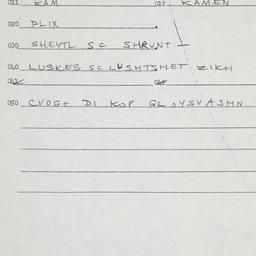 011 KAM 012 KAMEN
020 PLIX
030 SHEYTL SC SHRUNT
040 LUSKES SCLUSHTSHET ZIKH
050 CVOGT DI KOP